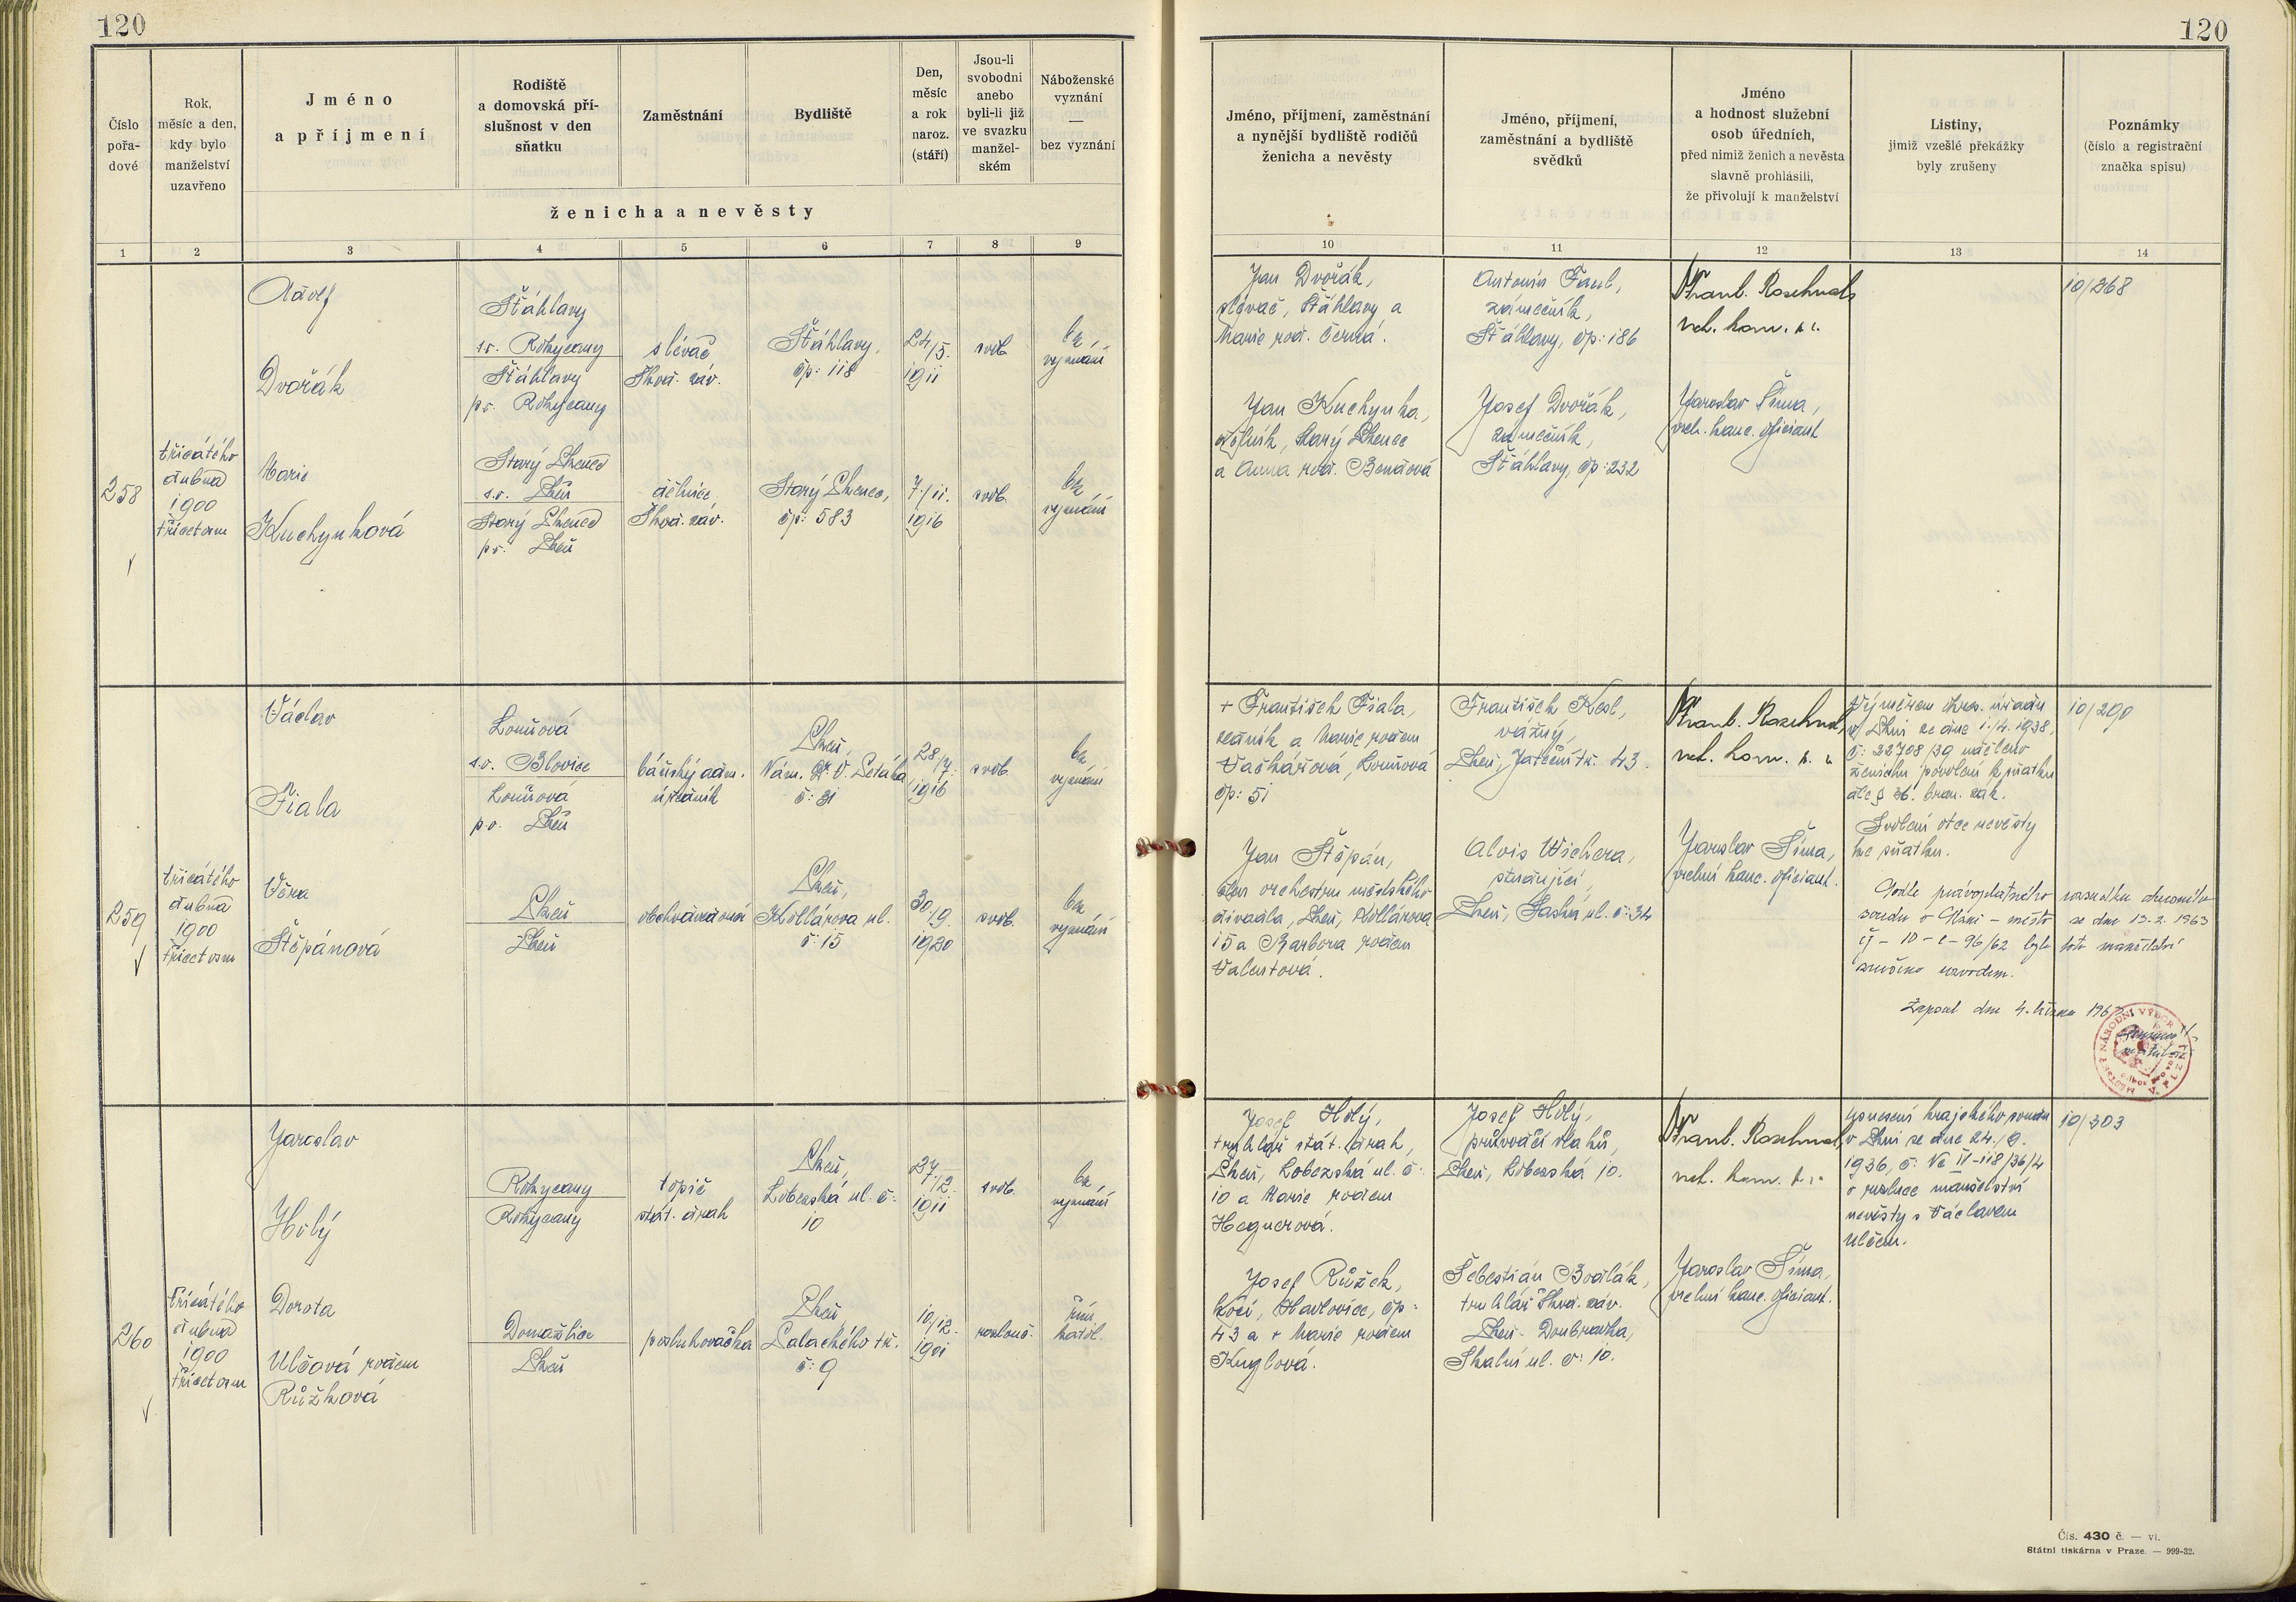 120
120
Číslo
pořa-
dové
Rok,
měsíc a den,
kdy bylo
manželství
uzavřeno
Jméno
a příjmení
Rodiště
a domovská pří-
slušnost v den
sňatku
Zaměstnání
Bydliště
Den,
měsíc
a rok
naroz.
(stáří)
Jsou-li
svobodni
anebo
byli-li již
ve svazku
manžel-
ském
Náboženské
vyznání
—
bez vyznání
ženicha a nevěsty
Jméno, příjmení, zaměstnání
a nynější bydliště rodičů
ženicha a nevěsty
Jméno, příjmení,
zaměstnání a bydliště
svědků
Jméno
a hodnost služební
osob úředních,
před nimiž ženich a nevěsta
slavně prohlásili,
že přivolují k manželství
Listiny,
jimiž vzešlé překážky
byly zrušeny
Poznámky
(číslo a registrační
značka spisu)
1 2 3 4 5 6 7 8 9 10 11 12 13 14
258
třicátého
dubna
1900
třicetosm
Adolf
Dvořák
Šťáhlavy
s.o. Rokycany
Šťáhlavy
p.o. Rokycany
slévač
Škod. záv.
Šťáhlavy,
čp: 118
24/5.
1911
svob.
bez
vyznání
Marie
Kuchynková
Starý Plzenec
s.o. Plzeň
Starý Plzenec
p.o. Plzeň
dělnice
Škod. záv.
Starý Plzenec,
čp: 583
7/11.
1916
svob.
bez
vyznání
Jan Dvořák,
slévač, Šťáhlavy a
Marie roz. Černá.
Jan Kuchynka,
dělník, Starý Plzenec
a Anna roz. Bendová
Antonín Faul,
zámečník,
Šťáhlavy, čp: 186
Josef Dvořák,
zámečník,
Šťáhlavy, čp: 232
vrch. kom. p. r.
Jaroslav Šíma,
vrch. kanc. oficiant
10/268
259
třicátého
dubna
1900
třicetosm
Václav
Fiala
s.o. Blovice
p.o. Plzeň
báňský adm.
úředník
Plzeň,
Nám. Dr. V. Petáka
č: 31
28/7.
1916
svob.
bez
vyznání
Věra
Štěpánová
Plzeň
Plzeň
obchodvedoucí
Plzeň,
Kollárova ul.
č: 15
30/9.
1920
svob.
bez
vyznání
+ František Fiala,
zedník a Marie rozen
čp: 51
Jan Štěpán,
člen orchestru městského
divadla, Plzeň, Kollárova
15 a Barbora rozen
Valentová.
František Kesl,
vážný,
Plzeň, Jateční tř. 43.
Alois Wichera,
studující,
Plzeň, ul. č: 34
vrch. kom. p. r.
Jaroslav Šíma,
vrchní kanc. oficiant.
Výměrem okres. úřadu
v Plzni ze dne 1./4. 1938,
č: 22708/39 uděleno
ženichu povolení k sňatku
dle § 36. bran. zák.
Svolení otce nevěsty
ke sňatku.
Podle pravoplatného rozsudku okresního
soudu v Plzni – město ze dne 13. 2. 1963
čj – 10 – c – 96/62 bylo toto manželství
zrušeno rozvodem.
Zapsal dne 4. března 1963
10/290
260
třicátého
dubna
1900
třicetosm
Jaroslav
Holý
Rokycany
Rokycany
topič
stát. drah
Plzeň,
Lobezská ul. č:
10
27/12.
1911
svob.
bez
vyznání
Dorota
Ulčová rozem
Růžková
Domažlice
Plzeň
posluhovačka
Plzeň,
Palackého tř.
č: 9
10/12.
1901
rozlouč.
řím.
katol.
Josef Holý,
truhlář stát. drah,
Plzeň, Lobezská ul. č:
10 a Marie rozem
Hegnerová.
Josef Růžek,
kočí, Havlovice, čp:
43 a + Marie rozem
Kuglová.
Josef Holý,
průvodčí vlaků,
Plzeň, Lobezská 10.
Šebestián Bozlák,
truhlář Škod. záv.
Plzeň - Doubravka,
Skalní ul. č: 10.
vrch. kom. p. r.
Jaroslav Šíma,
vrchní kanc. oficiant.
Usnesení krajského soudu
v Plzni ze dne 24./9.
1936, č: Nc IV-118/36/4
o rozluce manželství
nevěsty s Václavem
Ulčem.
10/303
Čís. 430 č. — vi.
Státní tiskárna v Praze. — 999-32.